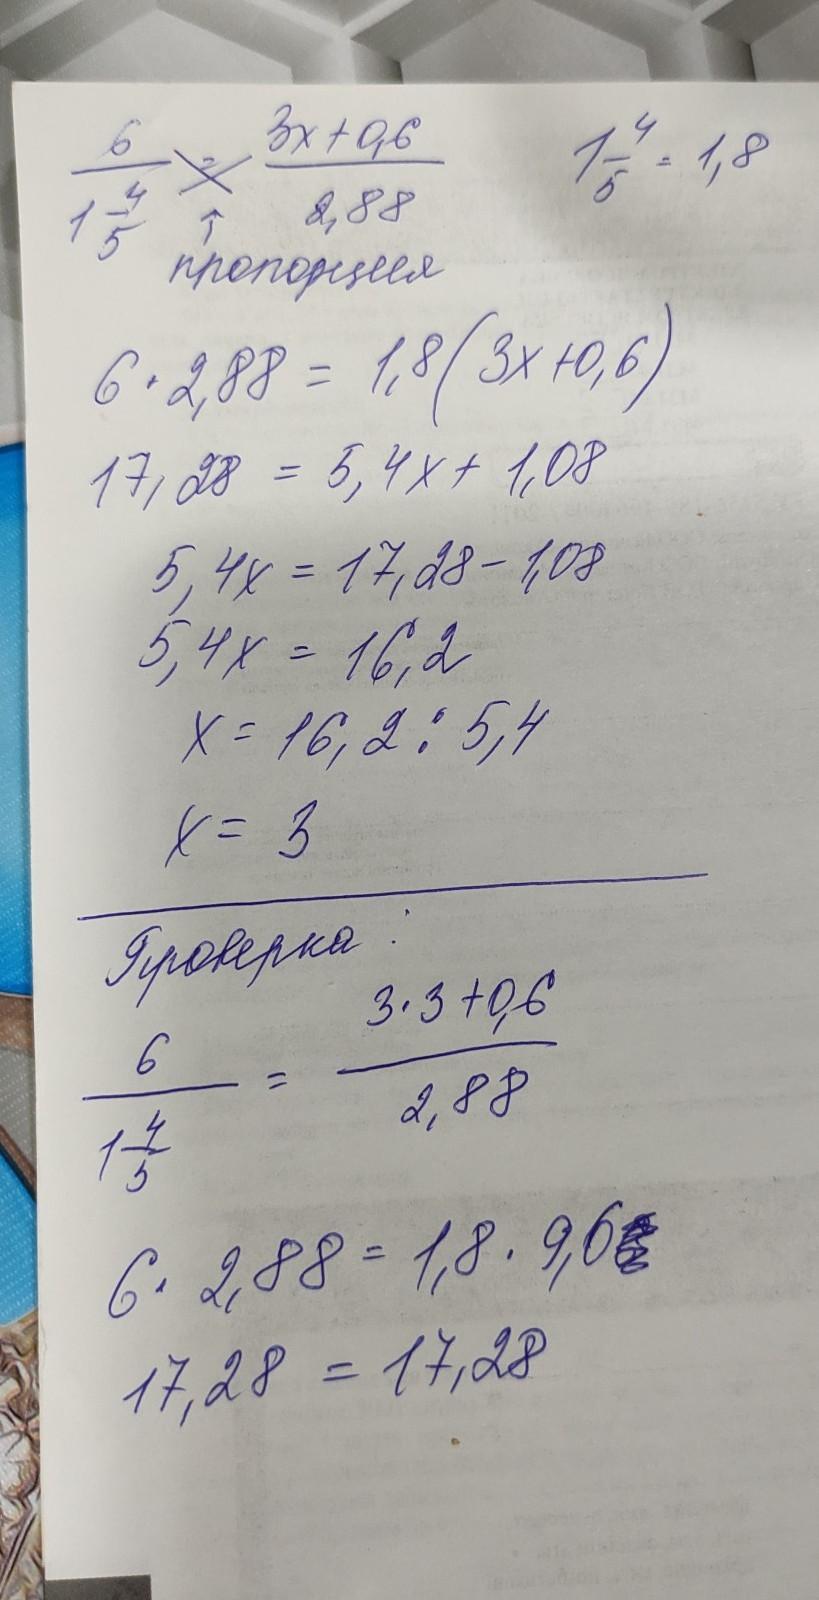 6/1 4/5 = 3x+0,6/2,88    1 4/5 = 1,8
↑
пропорция
6·2,88 = 1,8(3x+0,6)
17,28 = 5,4x+1,08
5,4x = 17,28-1,08
5,4x = 16,2
x = 16,2 : 5,4
x = 3
Проверка :
6/1 4/5 = 3·3+0,6/2,88
6·2,88 = 1,8·9,6
17,28 = 17,28